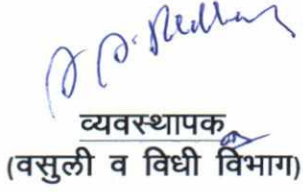 व्यवस्थापक
(वसुली व विधी विभाग)